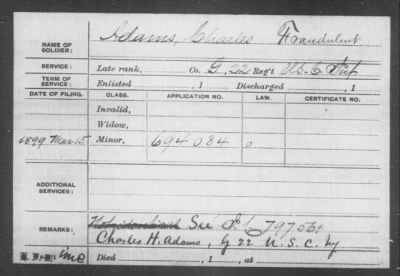 Adams, Charles Fraudulent
NAME OF SOLDIER:
SERVICE: Late rank, Co. G, 22 Reg't U.S.C. Inf
TERM OF SERVICE: Enlisted , 1 Discharged , 1
DATE OF FILING. CLASS. APPLICATION NO. LAW. CERTIFICATE NO.
Invalid,
Widow,
1899 Mar 15 Minor, 694084 0
ADDITIONAL SERVICES:
REMARKS: See
Charles H. Adams, G 22 U.S.C. Inf
Died , 1 , at